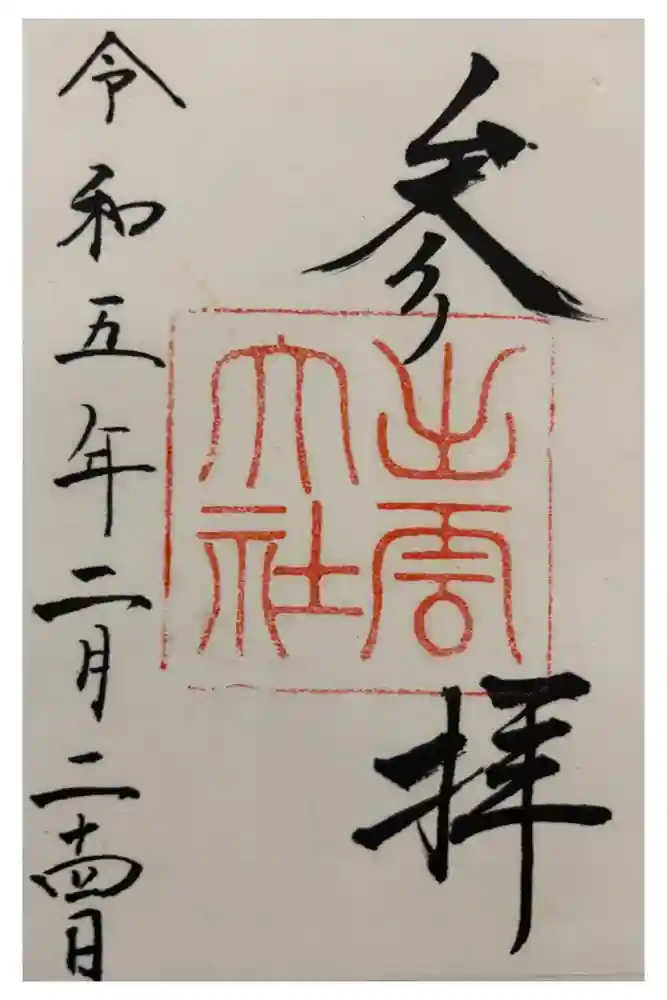 参拝
出雲
大社
令和五年二月二十四日